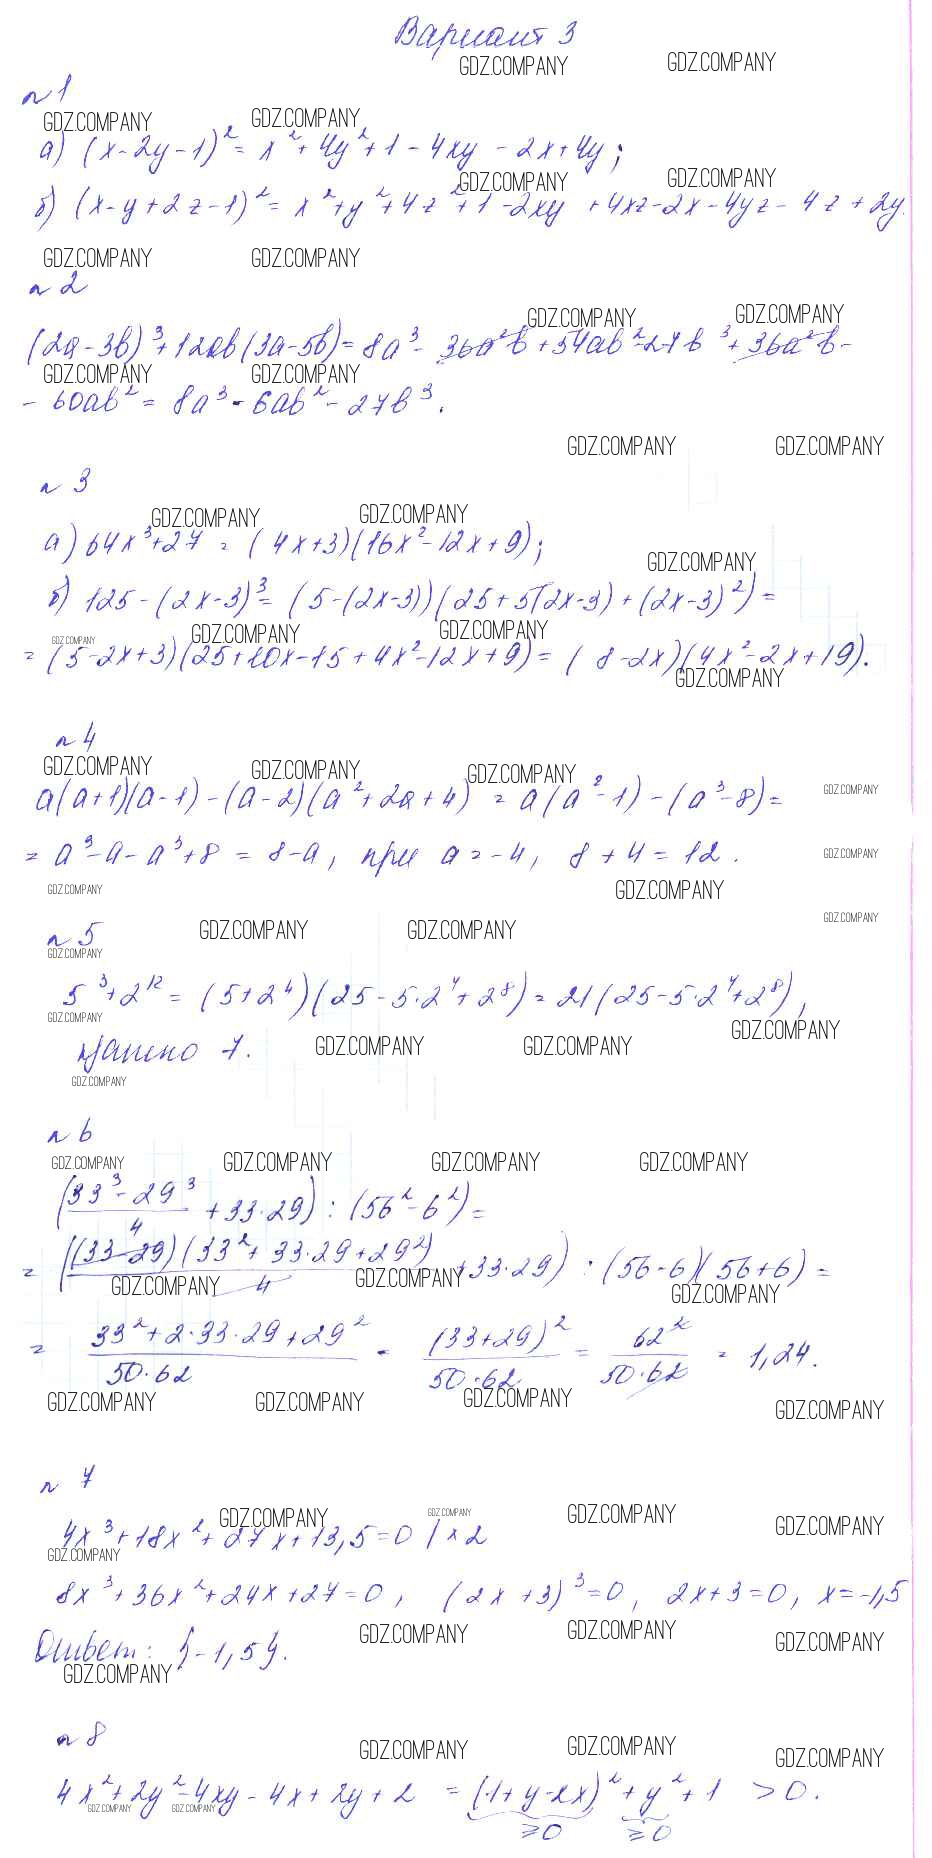 Вариант 3
GDZ.COMPANY GDZ.COMPANY
n 1
GDZ.COMPANY GDZ.COMPANY
а) (x-2y-1)² = x²+4y²+1-4xy-2x+4y;
GDZ.COMPANY GDZ.COMPANY
б) (x-y+2z-1)² = x²+y²+4z²+1-2xy+4xz-2x-4yz-4z+2y.
GDZ.COMPANY GDZ.COMPANY
n 2
GDZ.COMPANY GDZ.COMPANY
(2a-3b)³+12ab(3a-5b)=8a³-36a²b+54ab²-27b³+36a²b-
GDZ.COMPANY GDZ.COMPANY
-60ab² = 8a³-6ab²-27b³.
GDZ.COMPANY GDZ.COMPANY
n 3
GDZ.COMPANY GDZ.COMPANY
а) 64x³+27 = (4x+3)(16x²-12x+9);
GDZ.COMPANY
б) 125-(2x-3)³ = (5-(2x-3))(25+5(2x-3)+(2x-3)²) =
GDZ.COMPANY GDZ.COMPANY GDZ.COMPANY
= (5-2x+3)(25+10x-15+4x²-12x+9) = (8-2x)(4x²-2x+19).
GDZ.COMPANY
n 4
GDZ.COMPANY GDZ.COMPANY GDZ.COMPANY
a(a+1)(a-1)-(a-2)(a²+2a+4) = a(a²-1)-(a³-8)=
GDZ.COMPANY
= a³-a-a³+8 = 8-a, при a=-4, 8+4=12.
GDZ.COMPANY
GDZ.COMPANY GDZ.COMPANY
GDZ.COMPANY
n 5
GDZ.COMPANY GDZ.COMPANY
GDZ.COMPANY
5³+2¹² = (5+2⁴)(25-5·2⁴+2⁸) = 21(25-5·2⁴+2⁸),
GDZ.COMPANY GDZ.COMPANY
7.
GDZ.COMPANY GDZ.COMPANY
GDZ.COMPANY
n 6
GDZ.COMPANY GDZ.COMPANY GDZ.COMPANY GDZ.COMPANY
((33³-29³)/4 + 33·29) : (56²-6²) =
= ((33-29)(33²+33·29+29²)/4 + 33·29) : (56-6)(56+6) =
GDZ.COMPANY GDZ.COMPANY GDZ.COMPANY
= (33²+2·33·29+29²)/(50·62) = (33+29)²/(50·62) = 62²/(50·62) = 1,24.
GDZ.COMPANY GDZ.COMPANY GDZ.COMPANY GDZ.COMPANY
n 7
GDZ.COMPANY GDZ.COMPANY GDZ.COMPANY GDZ.COMPANY
4x³+18x²+27x+13,5=0 |×2
GDZ.COMPANY
8x³+36x²+24x+27=0, (2x+3)³=0, 2x+3=0, x=-1,5
GDZ.COMPANY GDZ.COMPANY GDZ.COMPANY
Ответ: {-1,5}.
GDZ.COMPANY
n 8
GDZ.COMPANY GDZ.COMPANY GDZ.COMPANY
4x²+2y²-4xy-4x+2y+2 = (1+y-2x)²+y²+1 >0.
GDZ.COMPANY GDZ.COMPANY
≥0 ≥0